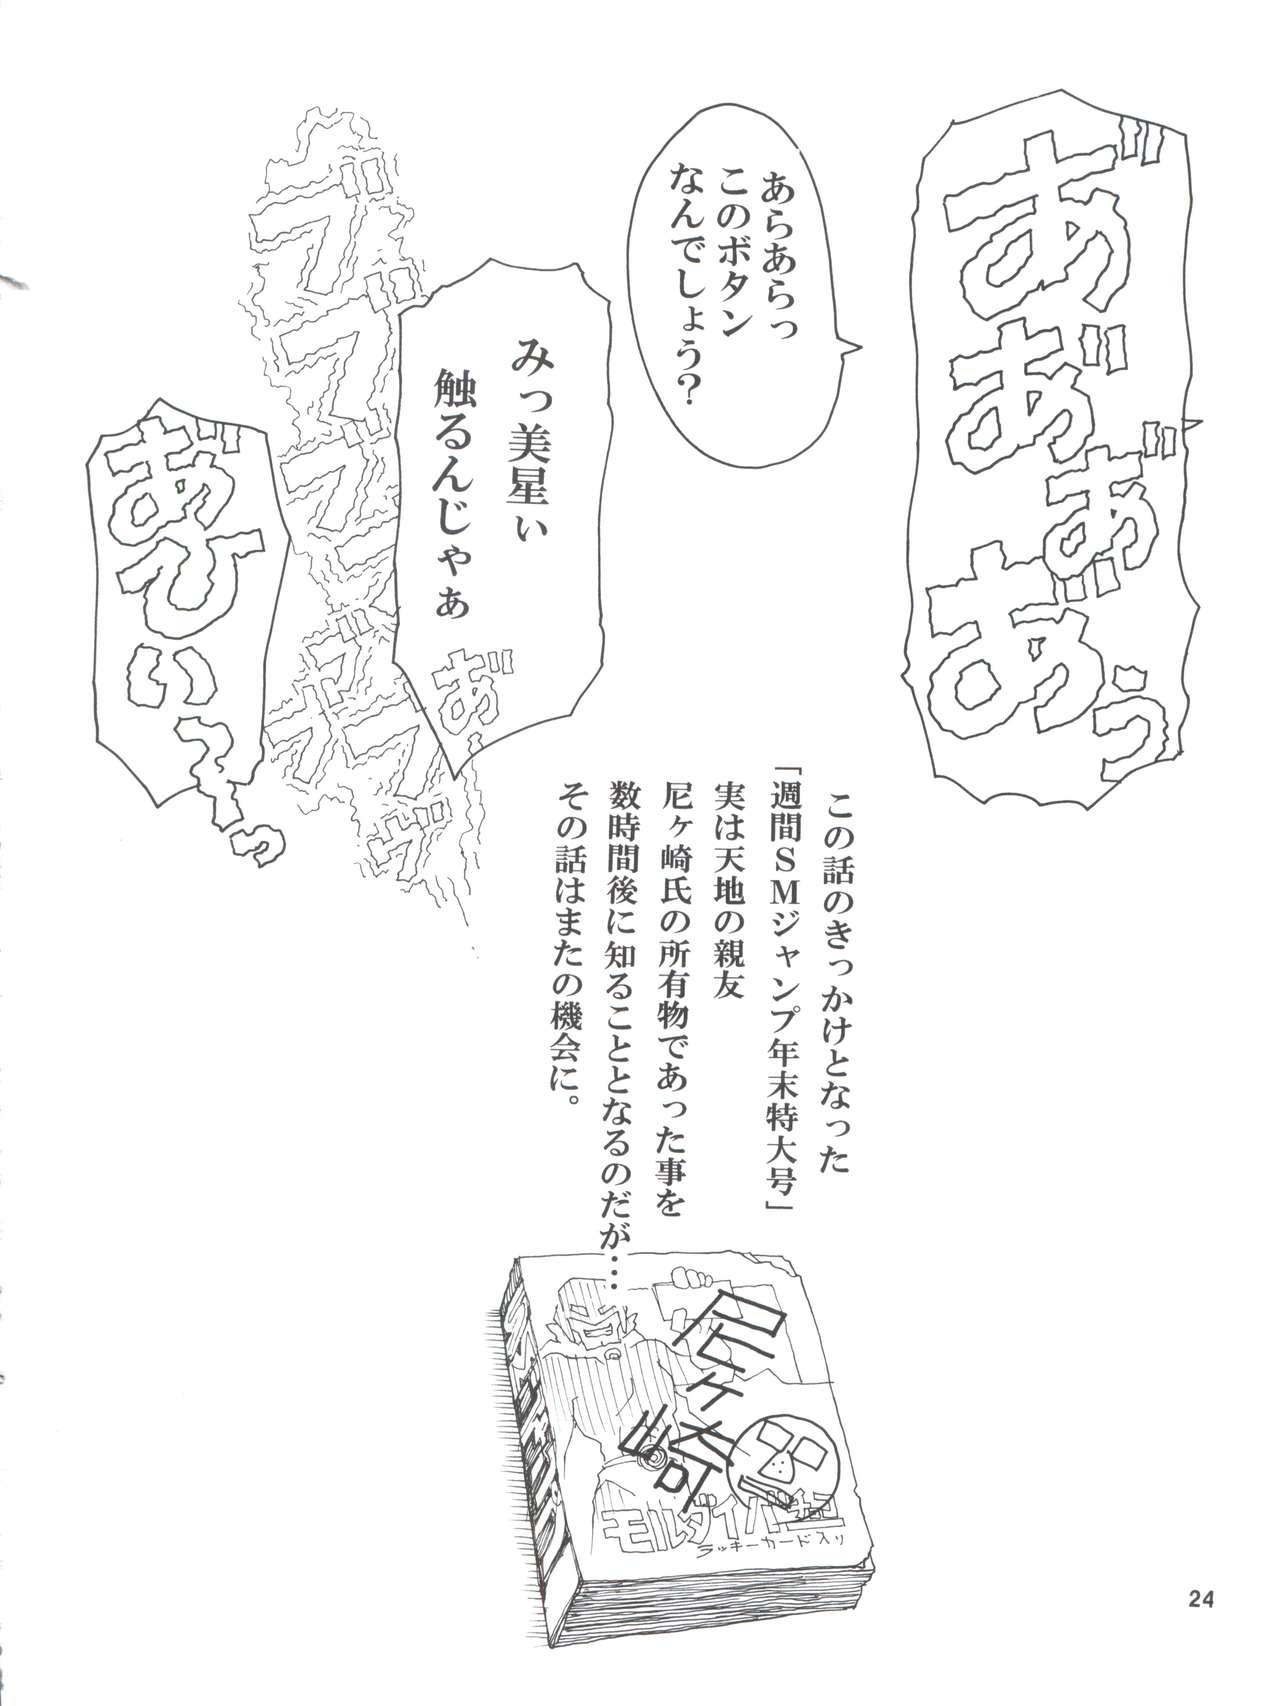 あ゛あ゛あ゛あ゛ぅ
あらあらっ
このボタン
なんでしょう？
みっ美星ぃ
触るんじゃぁ
あ゛ー
あ゛ひいーっ
この話のきっかけとなった
「週間ＳＭジャンプ年末特大号」
実は天地の親友
尼ヶ崎氏の所有物であった事を
数時間後に知ることとなるのだが…
その話はまたの機会に。
尼ヶ崎
モルダイバ
ラッキーカード入り
24